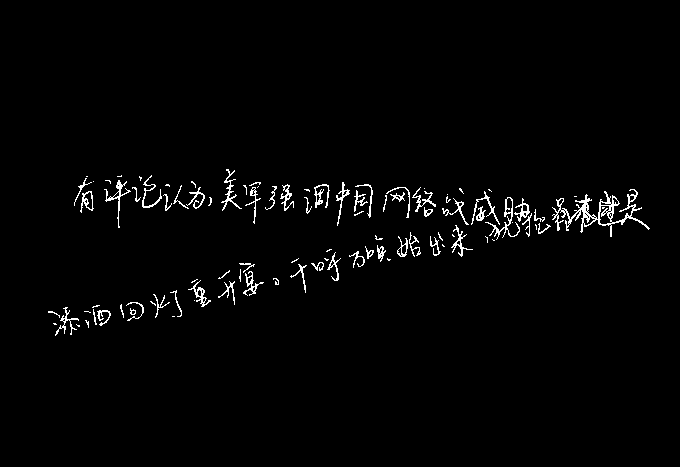 有评论认为,美军强调中国网络战威胁是
添酒回灯重开宴。千呼万唤始出来